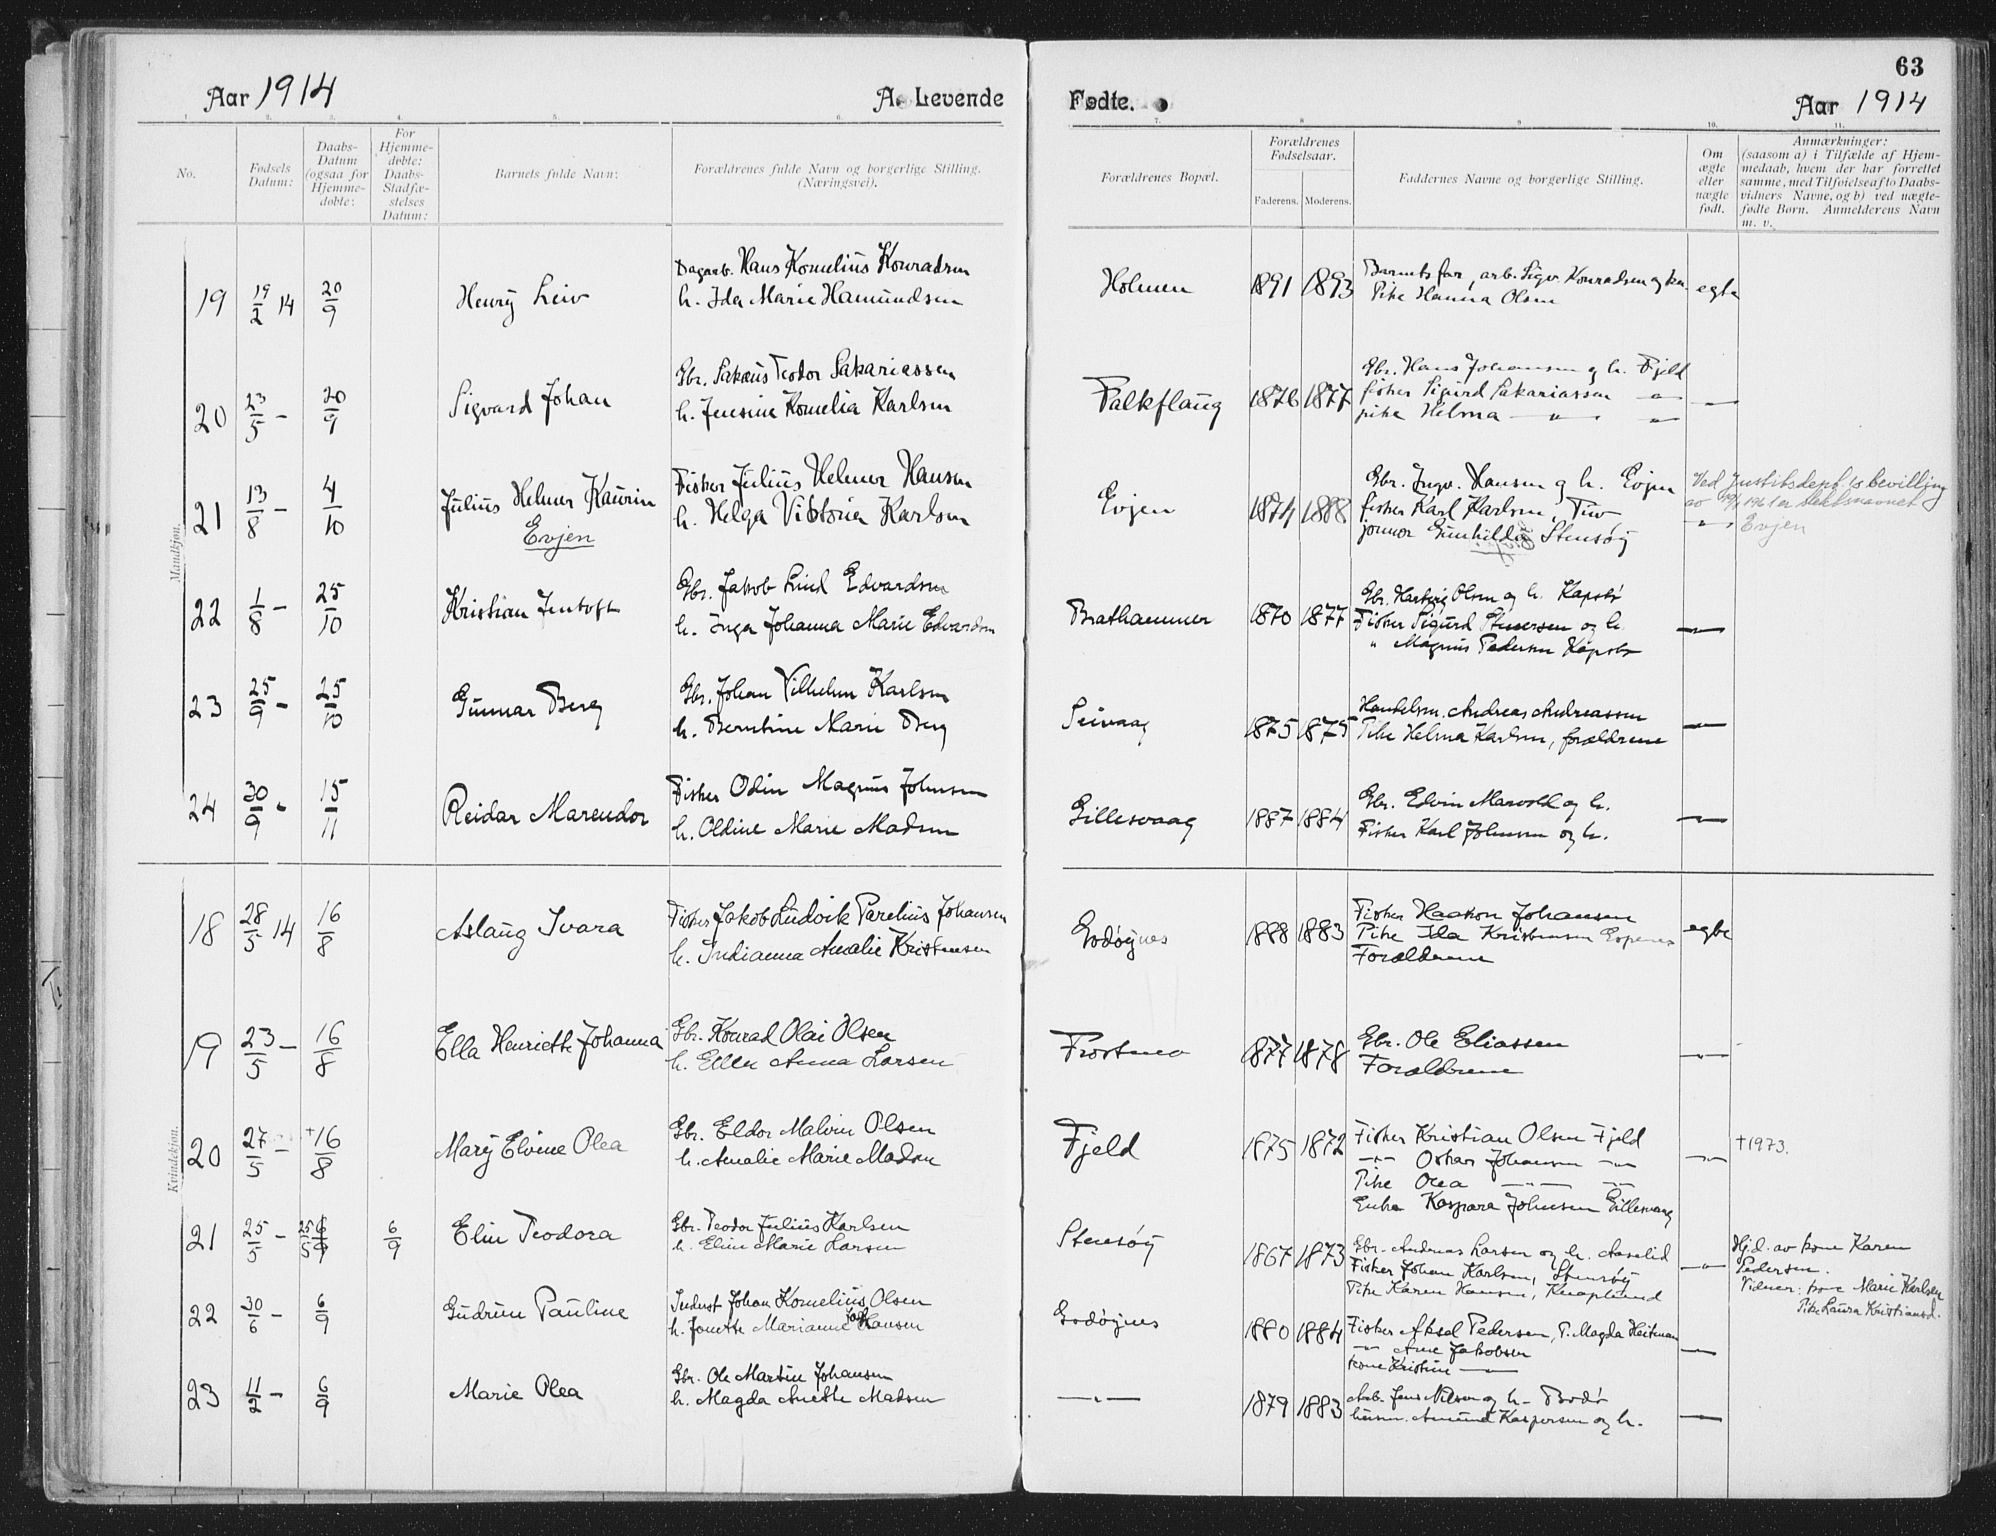 63
Aar 1914
A. Levende
Fødte.
Aar 1914
1. 2. 3. 4. 5. 6. 7. 8 9 10. 11.
No.
Fødsels Datum:
Daabs-Datum (ogsaa for Hjemme-døbte:
For Hjemme-døbte: Daabs-Stadfæ-stelses Datum:
Barnets fulde Navn:
Forældrenes fulde Navn og borgerlige Stilling. (Næringsvei).
Forældrenes Bopæl.
Forældrenes Fødselsaar.
Faderens. Moderens.
Faddernes Navne og borgerlige Stilling.
Om ægte eller nægte født.
Anmærkninger: (saasom a) i Tilfælde af Hjem-medaab, hvem der har forrettet samme, med Tilføielse af to Daabs-vidners Navne, og b) ved nægte-fødte Børn. Anmelderens Navn m. v.
Mandkjøn.
19 19/2 14 20/9 Henry Leiv
Dagarb. Hans Kornelius Konradsen
h. Ida Marie Hamundsen
Holmen 1891 1893
Barnets far, arb. Sigv. Konradsen og
Pike Hanna Olsen
egte
20 23/5 - 20/9 Sigvard Johan
Gbr. Sakæus Teodor Sakariassen
h. Jensine Kornelia Karlsen
Falkflaug 1876 1877
Gbr. Hans Johansen og h. Fjeld
fisker Sigurd Sakariassen — " —
pike Helma — " — — " —
— " —
21 13/8 - 4/10 Julius Helmer Kaurin
Evjen
Fisker Julius Helmer Hansen
h. Helga Viktoria Karlsen
Evjen 1874 1888
Gbr. Ingv. Hansen og h. Evjen
fisker Karl Karlsen, Tuv
jomfr Gunhilda Stensøy
— " —
Ved Justitsdept.s bevilling
av 1961 er slektsnavnet
Evjen
22 1/8 - 25/10 Kristian Jentoft
Gbr. Jakob Lind Edvardsen
h. Inga Johanna Marie Edvardsen
Brathammer 1870 1877
Gbr. Hartvig Olsen og h. Kapsto
Fisker Sigurd og h.
" Magnus Pedersen Kapsto
— " —
23 25/9 - 25/10 Gunnar Berg
Gbr. Johan Vilhelm Karlsen
h. Berntine Marie Berg
Seivaag 1875 1875
Handelsm. Andreas Andreassen
Pike Helma Karlsen, forældrene
— " —
24 30/9 - 15/11 Reidar Marendor
Fisker Odin Magnus Johnsen
h. Oldine Marie Madsen
Gillesvaag 1887 1884
Gbr. Edvin Marvold og h.
Fisker Karl Johnsen og h.
— " —
Kvindekjøn.
18 28/5 14 16/8 Aslaug Ivara
Fisker Jakob Ludvik Parelius Johansen
h. Indianna Amalie Kristensen
Godøynes 1888 1883
Fisker Haakon Johansen
Pike Ida Kristensen Espenes
Forældrene
egte
19 23/5 - 16/8 Ella Henriette Johanna
Gbr. Konrad Olai Olsen
h. Ellen Anna Larsen
Frostmo 1877 1878
Gbr. Ole Eliassen
Forældrene
— " —
20 27/5 - 16/8 Mary Elvine Olea
Gbr. Eldor Malvin Olsen
h. Amalie Marie Madsen
Fjeld 1875 1872
Fisker Kristian Olsen Fjeld
— " — Oskar Johansen — " —
Pike Olea — " — — " —
Enke Kaspara Johnsen Gillesvaag
— " —
† 1973.
21 25/5 - 25/5 6/9 6/9 Elin Teodora
Gbr. Teodor Julius Karlsen
h. Elen Marie Larsen
Stensøy 1867 1873
Gbr. Andreas Larsen og h. Aaselid
Fisker Johan Karlsen, Stensøy
Pike Karen Hansen, Knaplund
— " —
Hj.d. av kone Karen
Pedersen.
Vidner: kone Marie Karlsen
Pike Laura Kristiansd.
22 30/6 - 6/9 Gudrun Pauline
Inderst Johan Kornelius Olsen
h. Jonette Marianne Hansen
Godøynes 1880 1884
Fisker Aksel Pedersen, P. Magda Heitman
— " — Arne Jakobsen
kone Kristine — " —
— " —
23 11/2 - 6/9 Marie Olea
Gbr. Ole Martin Johansen
h. Magda Anette Madsen
— " — 1879 1883
Arb. Jens Nilsen og h. Bodø
husm. Amund Kaspersen og h.
— " —